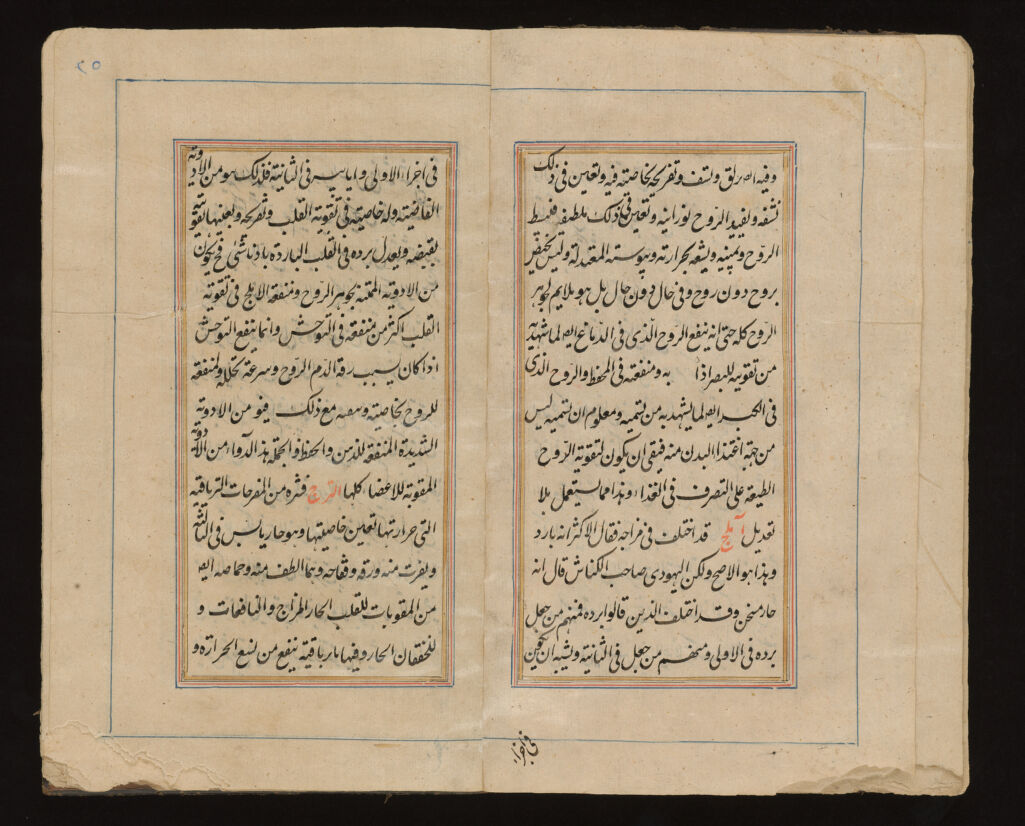 وفيه ايض بريق وشف وتفريحه بخاصيته فيه وتعين في ذلك
نشفه ويفيد الروح نورانية وتعين في ذلك ملطيفه فيبسط
الروح ويمتنه ويشعه بحرارته ويبوسته المعتدلة وليس يختص
بروح دون روح وفي حال دون حال بل هو يلايم لجوهر
الروح كله حتى انه ينفع الروح الذي في الدماغ ايض لما شهد به
من تقويته للبصر اذا به ومنفعته في الحفظ والروح الذي
في الكبد ايض لما يشهد به من تسميه ومعلوم ان تسميه ليس
من جهة اغتذاء البدن منه فبقي ان يكون لتقوية الروح
الطبيعة على التصرف في الغذاء وهذا مما يستعمل بلا
تعديل آملج قد اختلف في مزاجه فقال الاكثر انه بارد
وهذا هو الاصح ولكن اليهودي صاحب الكناش قال انه
حار مسخن وقد اختلف الذين قالوا ببرده فمنهم من جعل
برده في الاولى ومنهم من جعل في الثانية ويشبه ان يكون
في اجزاء
٢٥
في اجزاء الاولى واما يبسه في الثانية فلذلك هو من الادوية
القابضة وله خاصية في تقوية القلب وتفريحه وبعينها تقويته
بقبضه ويعدل برده في القلب الباردة بادنا شئ فح يكون
من الادوية الممتنة بجوهر الروح ومنفعة الاملج في تقوية
القلب اكثر من منفعته في التوحش وانما ينفع التوحش
اذا كان بسبب رقة الدم الروح وسرعة تحلله ومنفعته
للروح بخاصيته وقبضه مع ذلك فهو من الادوية
الشديدة المنفعة للذهن والحفظ وبالجملة هذا الدواء من الادوية
المقوية للاعضاء كلها الترج قشره من المفرحات الترياقية
التي حرارتها تعين خاصيتها وهو حار يابس في الثالثة
ويقرب منه ورقه وفقاحه وهما الطف منه وحماضه ايض
من المقويات للقلب الحار المزاج والنافعات و
للخفقان الحار وفيها ترياقية ينفع من لسع الجرارة و